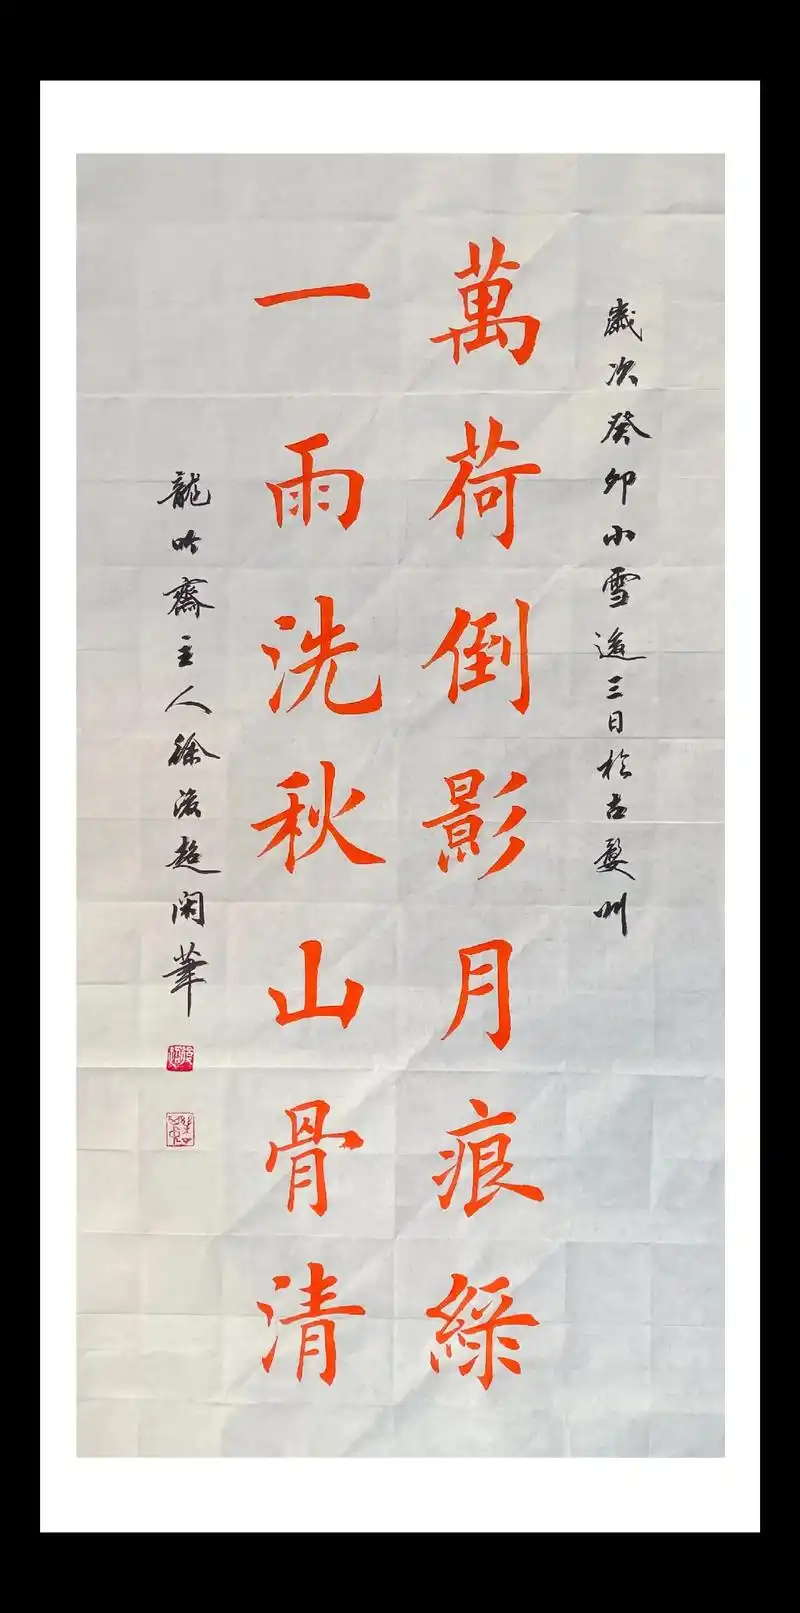 歲次癸卯小雪後三日於古婺州
萬荷倒影月痕綵
一雨洗秋山骨清
龍吟齋主人徐浚超閑筆